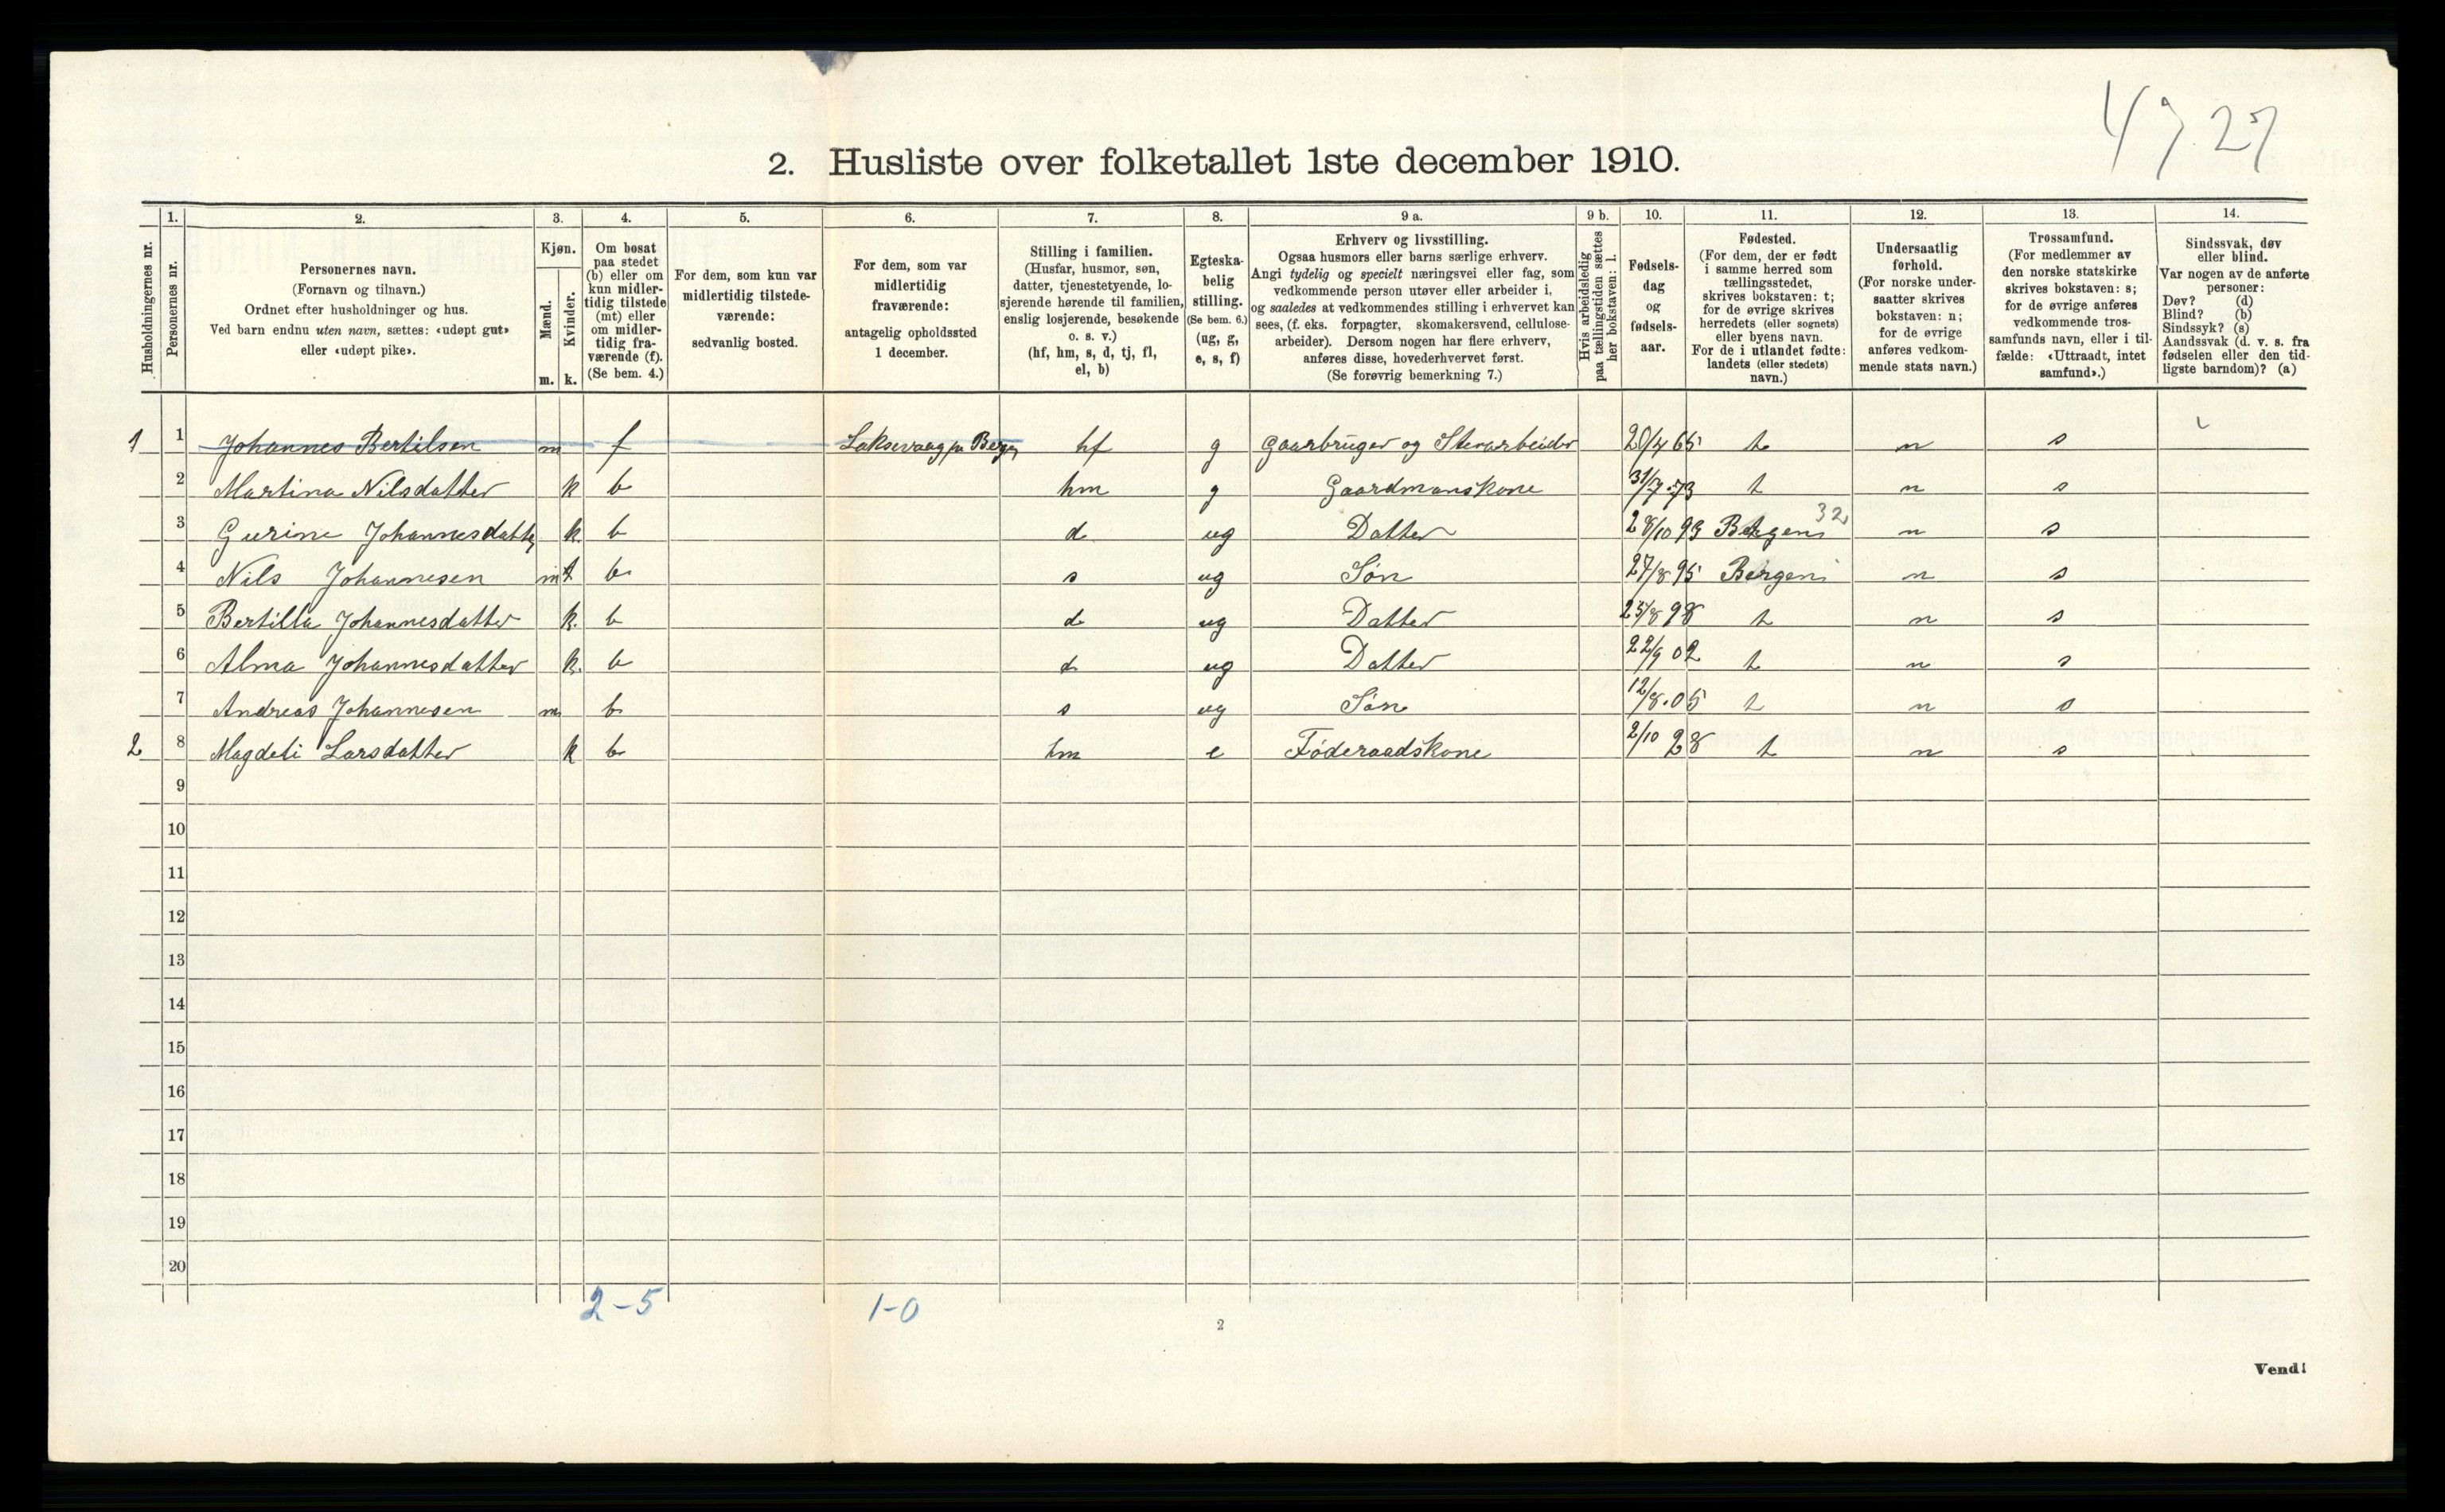 47.27
2. Husliste over folketallet 1ste december 1910.
Husholdningernes nr.
1.
Personernes nr.
2.
Personernes navn.
(Fornavn og tilnavn.)
Ordnet efter husholdninger og hus.
Ved barn endnu uten navn, sættes: «udøpt gut»
eller «udøpt pike».
3.
Kjøn.
Mænd.
Kvinder.
m. k.
4.
Om bosat
paa stedet
(b) eller om
kun midler-
tidig tilstede
(mt) eller
om midler-
tidig fra-
værende (f).
(Se bem. 4.)
5.
For dem, som kun var
midlertidig tilstede-
værende:
sedvanlig bosted.
6.
For dem, som var
midlertidig
fraværende:
antagelig opholdssted
1 december.
7.
Stilling i familien.
(Husfar, husmor, søn,
datter, tjenestetyende, lo-
sjerende hørende til familien,
enslig losjerende, besøkende
o. s. v.)
(hf, hm, s, d, tj, fl,
el, b)
8.
Egteska-
belig
stilling.
(Se bem. 6.)
(ug, g,
e, s, f)
9 a.
Erhverv og livsstilling.
Ogsaa husmors eller barns særlige erhverv.
Angi tydelig og specielt næringsvei eller fag, som
vedkommende person utøver eller arbeider i,
og saaledes at vedkommendes stilling i erhvervet kan
sees, (f. eks. forpagter, skomakersvend, cellulose-
arbeider). Dersom nogen har flere erhverv,
anføres disse, hovederhvervet først.
(Se forøvrig bemerkning 7.)
9 b.
Hvis arbeidsledig
paa tællingstiden sættes
her bokstaven: l.
10.
Fødsels-
dag
og
fødsels-
aar.
11.
Fødested.
(For dem, der er født
i samme herred som
tællingsstedet,
skrives bokstaven: t;
for de øvrige skrives
herredets (eller sognets)
eller byens navn.
For de i utlandet fødte:
landets (eller stedets)
navn.)
12.
Undersaatlig
forhold.
(For norske under-
saatter skrives
bokstaven: n;
for de øvrige
anføres vedkom-
mende stats navn.)
13.
Trossamfund.
(For medlemmer av
den norske statskirke
skrives bokstaven: s;
for de øvrige anføres
vedkommende tros-
samfunds navn, eller i til-
fælde: «Uttraadt, intet
samfund».)
14.
Sindssvak, døv
eller blind.
Var nogen av de anførte
personer:
Døv? (d)
Blind? (b)
Sindssyk? (s)
Aandssvak (d. v. s. fra
fødselen eller den tid-
ligste barndom)? (a)
1 1 Johannes Bertilsen m f Laksevaag pr Bergen hf g Gaarbruger og Stenarbeider 20/4 65 t n s
2 Martina Nilsdatter k b hm g Gaardmanskone 31/7.73 t n s
3 Gurine Johannesdatter k b d ug Datter 28/10 93 Bergen 32 n s
4 Nils Johannesen m b s ug Søn 27/8 95 Bergen n s
5 Bertilla Johannesdatter k. b d ug Datter 25/8 98 t n s
6 Alma Johannesdatter k. b d ug Datter 22/9 02 t n s
7 Andreas Johannesen m b s ug Søn 12/8.05 t n s
2 8 Magdeli Larsdatter k b hm e Føderaadskone 2/10 28 t n s
9
10
11
12
13
14
15
16
17
18
19
20
2-5 1-0
2
Vend!